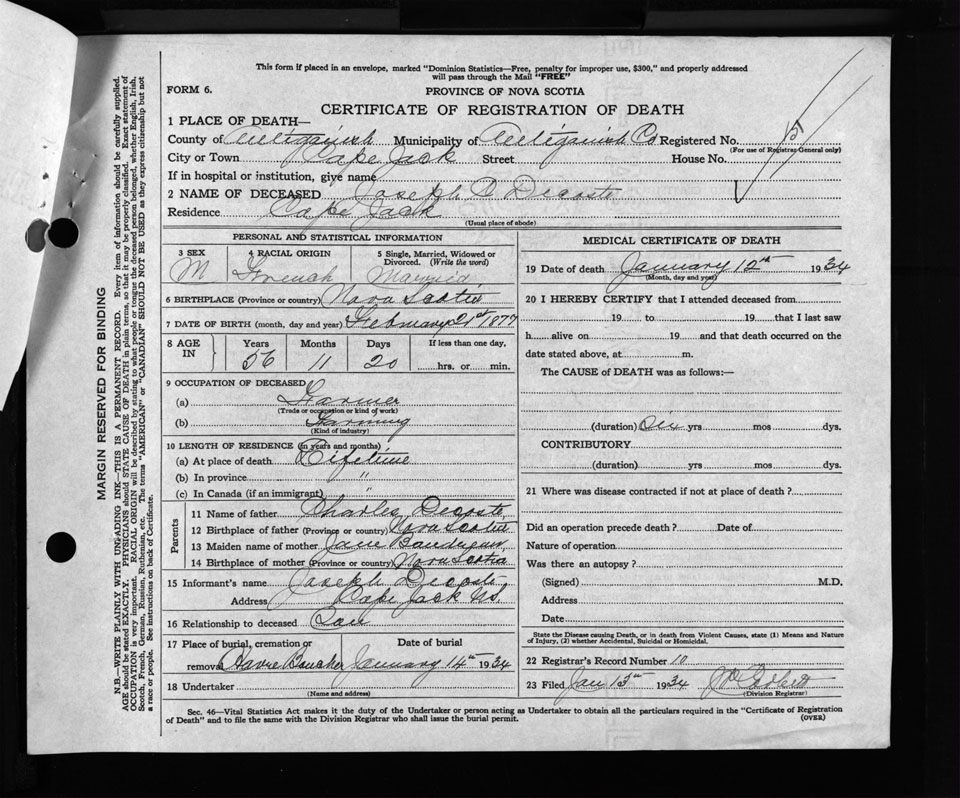 This form if placed in an envelope, marked "Dominion Statistics—Free, penalty for improper use, $300," and properly addressed
will pass through the Mail "FREE"
FORM 6.
PROVINCE OF NOVA SCOTIA
CERTIFICATE OF REGISTRATION OF DEATH
1 PLACE OF DEATH—
County of Antigonish Municipality of Antigonish Co Registered No.
(For use of Registrar-General only)
City or Town Cape Jack Street House No.
If in hospital or institution, give name
2 NAME OF DECEASED Joseph Decoste
Residence Cape Jack
(Usual place of abode)
PERSONAL AND STATISTICAL INFORMATION
3 SEX 4 RACIAL ORIGIN 5 Single, Married, Widowed or Divorced. (Write the word)
M French Married
6 BIRTHPLACE (Province or country) Nova Scotia
7 DATE OF BIRTH (month, day and year) February 1877
8 AGE IN Years Months Days If less than one day,
56 11 20 hrs. or min.
9 OCCUPATION OF DECEASED
(a) Farmer
(Trade or occupation or kind of work)
(b) Farming
(Kind of industry)
10 LENGTH OF RESIDENCE (in years and months)
(a) At place of death Lifetime
(b) In province "
(c) In Canada (if an immigrant)
Parents
11 Name of father Charles Decoste
12 Birthplace of father (Province or country) Nova Scotia
13 Maiden name of mother Jane
14 Birthplace of mother (Province or country) Nova Scotia
15 Informant's name Joseph Decoste
Address Cape Jack NS.
16 Relationship to deceased Son
17 Place of burial, cremation or removal Date of burial
Havre Boucher January 14th 1934
18 Undertaker
(Name and address)
MEDICAL CERTIFICATE OF DEATH
19 Date of death January 12th 1934
(Month, day and year)
20 I HEREBY CERTIFY that I attended deceased from
19 to 19 that I last saw
h alive on 19 and that death occurred on the
date stated above, at m.
The CAUSE of DEATH was as follows:—
(duration) Six yrs mos dys.
CONTRIBUTORY
(duration) yrs mos dys.
21 Where was disease contracted if not at place of death?
Did an operation precede death? Date of
Nature of operation
Was there an autopsy?
(Signed) M.D.
Address
Date
State the Disease causing Death, or in death from Violent Causes, state (1) Means and Nature
of Injury, (2) whether Accidental, Suicidal or Homicidal.
22 Registrar's Record Number 10
23 Filed Jan 13th 1934
(Division Registrar)
Sec. 46—Vital Statistics Act makes it the duty of the Undertaker or person acting as Undertaker to obtain all the particulars required in the "Certificate of Registration
of Death" and to file the same with the Division Registrar who shall issue the burial permit.
(OVER)
MARGIN RESERVED FOR BINDING
N.B.—WRITE PLAINLY WITH UNFADING INK—THIS IS A PERMANENT RECORD. Every item of information should be carefully supplied.
AGE should be stated EXACTLY. PHYSICIANS should STATE CAUSE OF DEATH in plain terms, so that it may be properly classified. Exact statement of
OCCUPATION is very important. RACIAL ORIGIN will be described by stating to what people or tongue the deceased person belonged, whether English, Irish,
Scotch, French, German, Russian, Ruthenian, etc. The terms "AMERICAN" or "CANADIAN" SHOULD NOT BE USED as they express citizenship but not
a race or people. See instructions on back of Certificate.